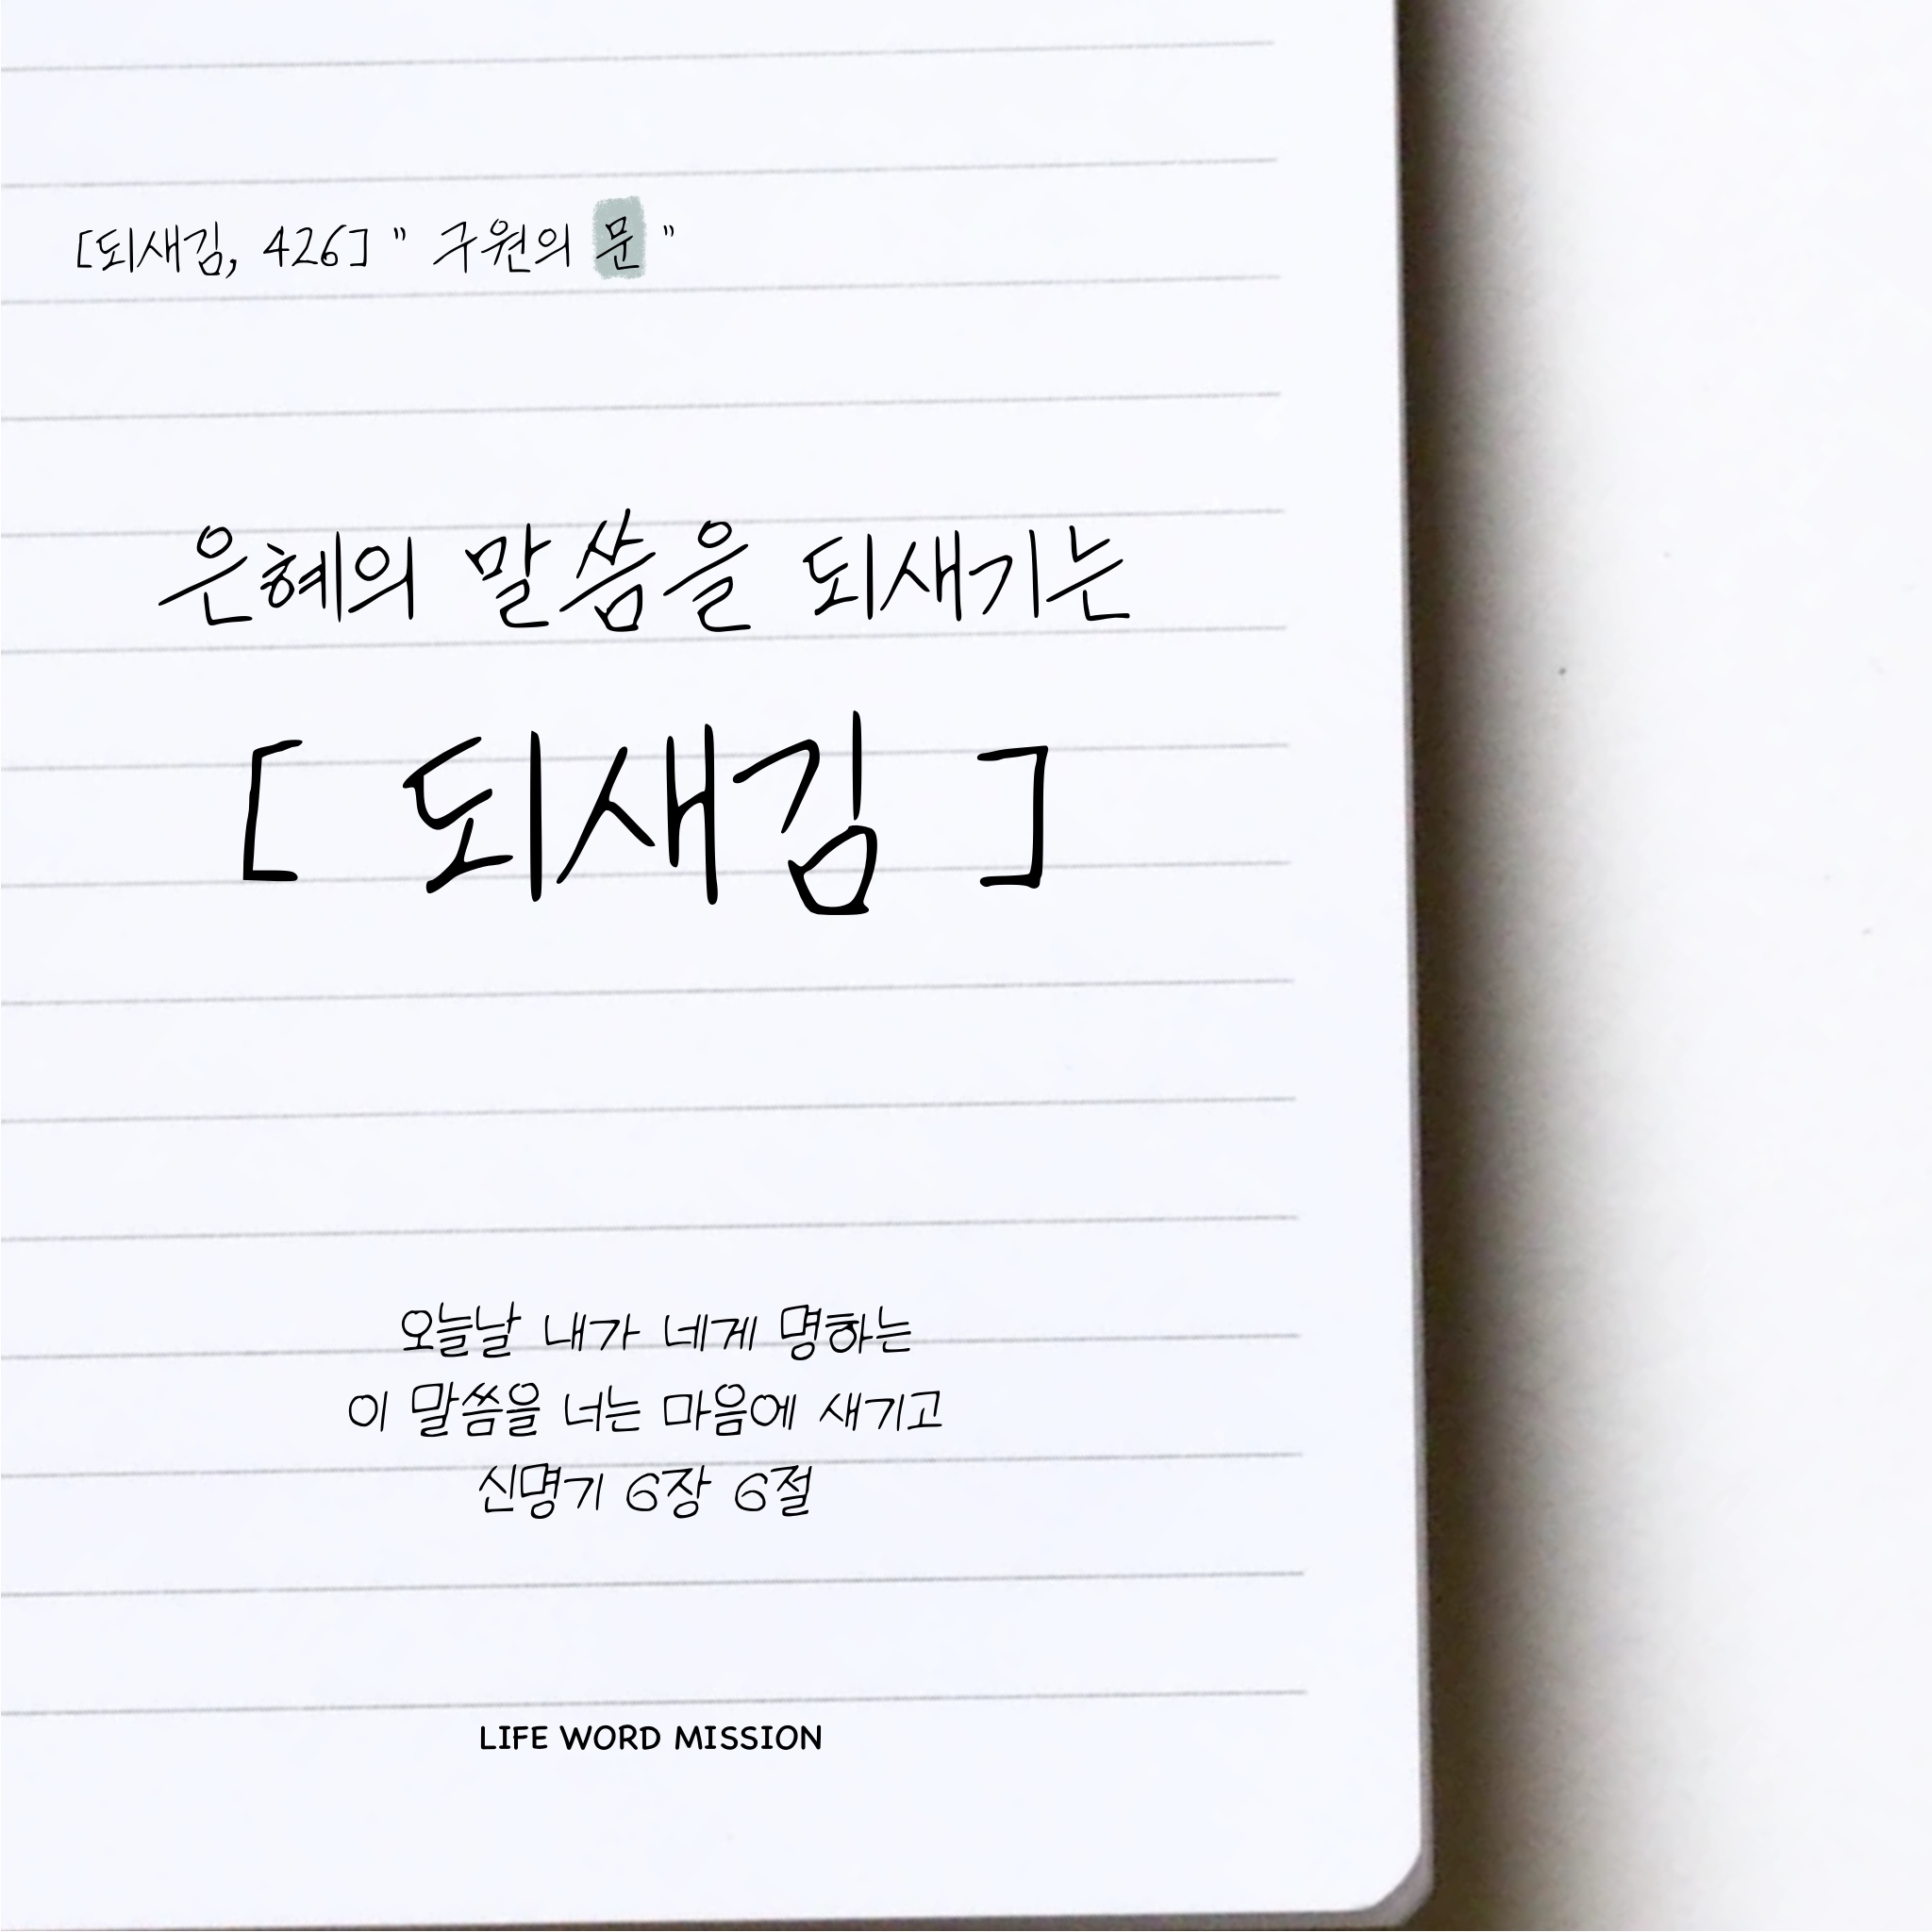 [되새김, 426] " 구원의 문 "
은혜의 말씀을 되새기는
[ 되새김 ]
오늘날 내가 네게 명하는
이 말씀을 너는 마음에 새기고
신명기 6장 6절
LIFE WORD MISSION